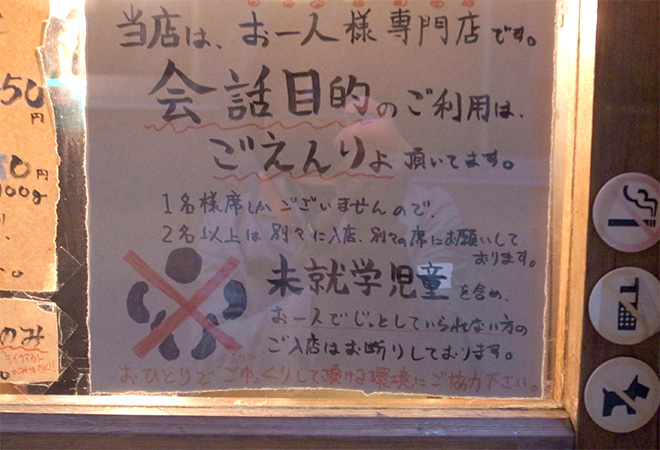 当店は、お一人様専門店です。
会話目的のご利用は、
ごえんりょ頂いてます。
1名様席しかございませんので、
2名以上は別々に入店、別々の席にお願いして
おります。
未就学児童を含め、
お一人でじっとしていられない方の
ご入店はお断りしております。
おひとりでごゆっくりして頂ける環境にご協力下さい。
50
円
0円
100g
のみ